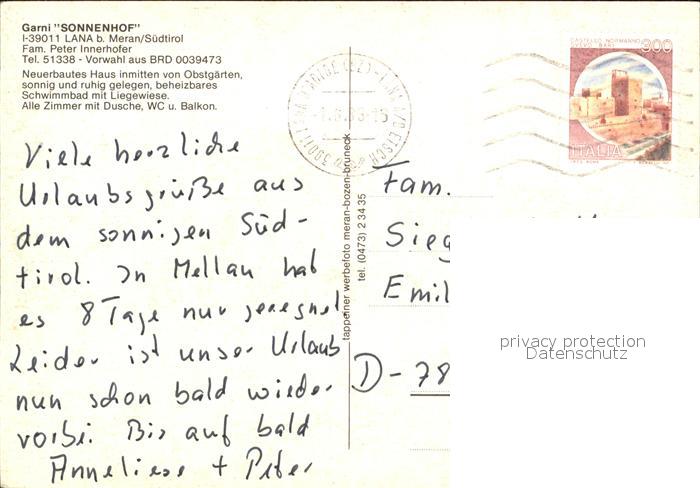 Garni "SONNENHOF"
I-39011 LANA b. Meran/Südtirol
Fam. Peter Innerhofer
Tel. 51338 - Vorwahl aus BRD 0039473
Neuerbautes Haus inmitten von Obstgärten,
sonnig und ruhig gelegen, beheizbares
Schwimmbad mit Liegewiese.
Alle Zimmer mit Dusche, WC u. Balkon.
Viele herzliche
Urlaubsgrüße aus
dem sonnigen Süd-
tirol. In Mellau hat
es 8 Tage nur geregnet
Leider ist unser Urlaub
nun schon bald wieder
vorbei. Bis auf bald
Anneliese + Peter
tappeiner werbefoto meran-bozen-bruneck
tel. (0473) 2 34 35
CASTELLO NORMANNO
SVEVO BARI
300
ITALIA
Fam.
Sieg
Emil
D-78
privacy protection
Datenschutz